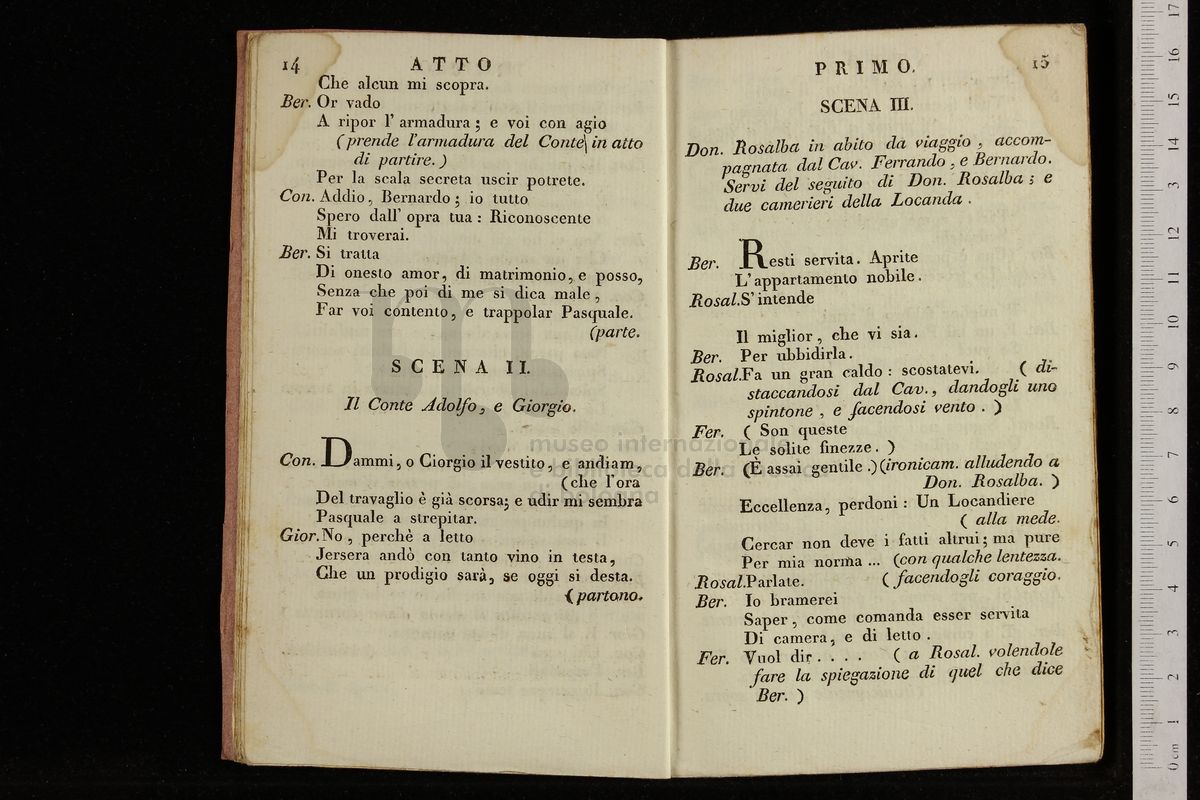 14 ATTO
Che alcun mi scopra.
Ber. Or vado
A ripor l' armadura ; e voi con agio
( prende l'armadura del Conte in atto
di partire. )
Per la scala secreta uscir potrete.
Con. Addio, Bernardo ; io tutto
Spero dall' opra tua : Riconoscente
Mi troverai.
Ber. Si tratta
Di onesto amor, di matrimonio, e posso,
Senza che poi di me si dica male ,
Far voi contento, e trappolar Pasquale.
(parte.
SCENA II.
Il Conte Adolfo, e Giorgio.
Con. Dammi, o Giorgio il vestito, e andiam,
(che l'ora
Del travaglio è già scorsa; e udir mi sembra
Pasquale a strepitar.
Gior. No , perchè a letto
Jersera andò con tanto vino in testa,
Che un prodigio sarà, se oggi si desta.
(partono.
PRIMO. 15
SCENA III.
Don. Rosalba in abito da viaggio , accom-
pagnata dal Cav. Ferrando , e Bernardo.
Servi del seguito di Don. Rosalba ; e
due camerieri della Locanda .
Ber. Resti servita. Aprite
L'appartamento nobile.
Rosal. S' intende
Il miglior, che vi sia.
Ber. Per ubbidirla.
Rosal. Fa un gran caldo : scostatevi. ( di-
staccandosi dal Cav., dandogli uno
spintone , e facendosi vento . )
Fer. ( Son queste
Le solite finezze. )
Ber. (È assai gentile .) (ironicam. alludendo a
Don. Rosalba. )
Eccellenza, perdoni : Un Locandiere
( alla mede.
Cercar non deve i fatti altrui ; ma pure
Per mia norma ... (con qualche lentezza.
Rosal. Parlate. ( facendogli coraggio.
Ber. Io bramerei
Saper , come comanda esser servita
Di camera, e di letto .
Fer. Vuol dir . . . . ( a Rosal. volendole
fare la spiegazione di quel che dice
Ber. )
museo internazionale
e biblioteca della musica
di bologna
0 cm 1 2 3 4 5 6 7 8 9 10 11 12 13 14 15 16 17